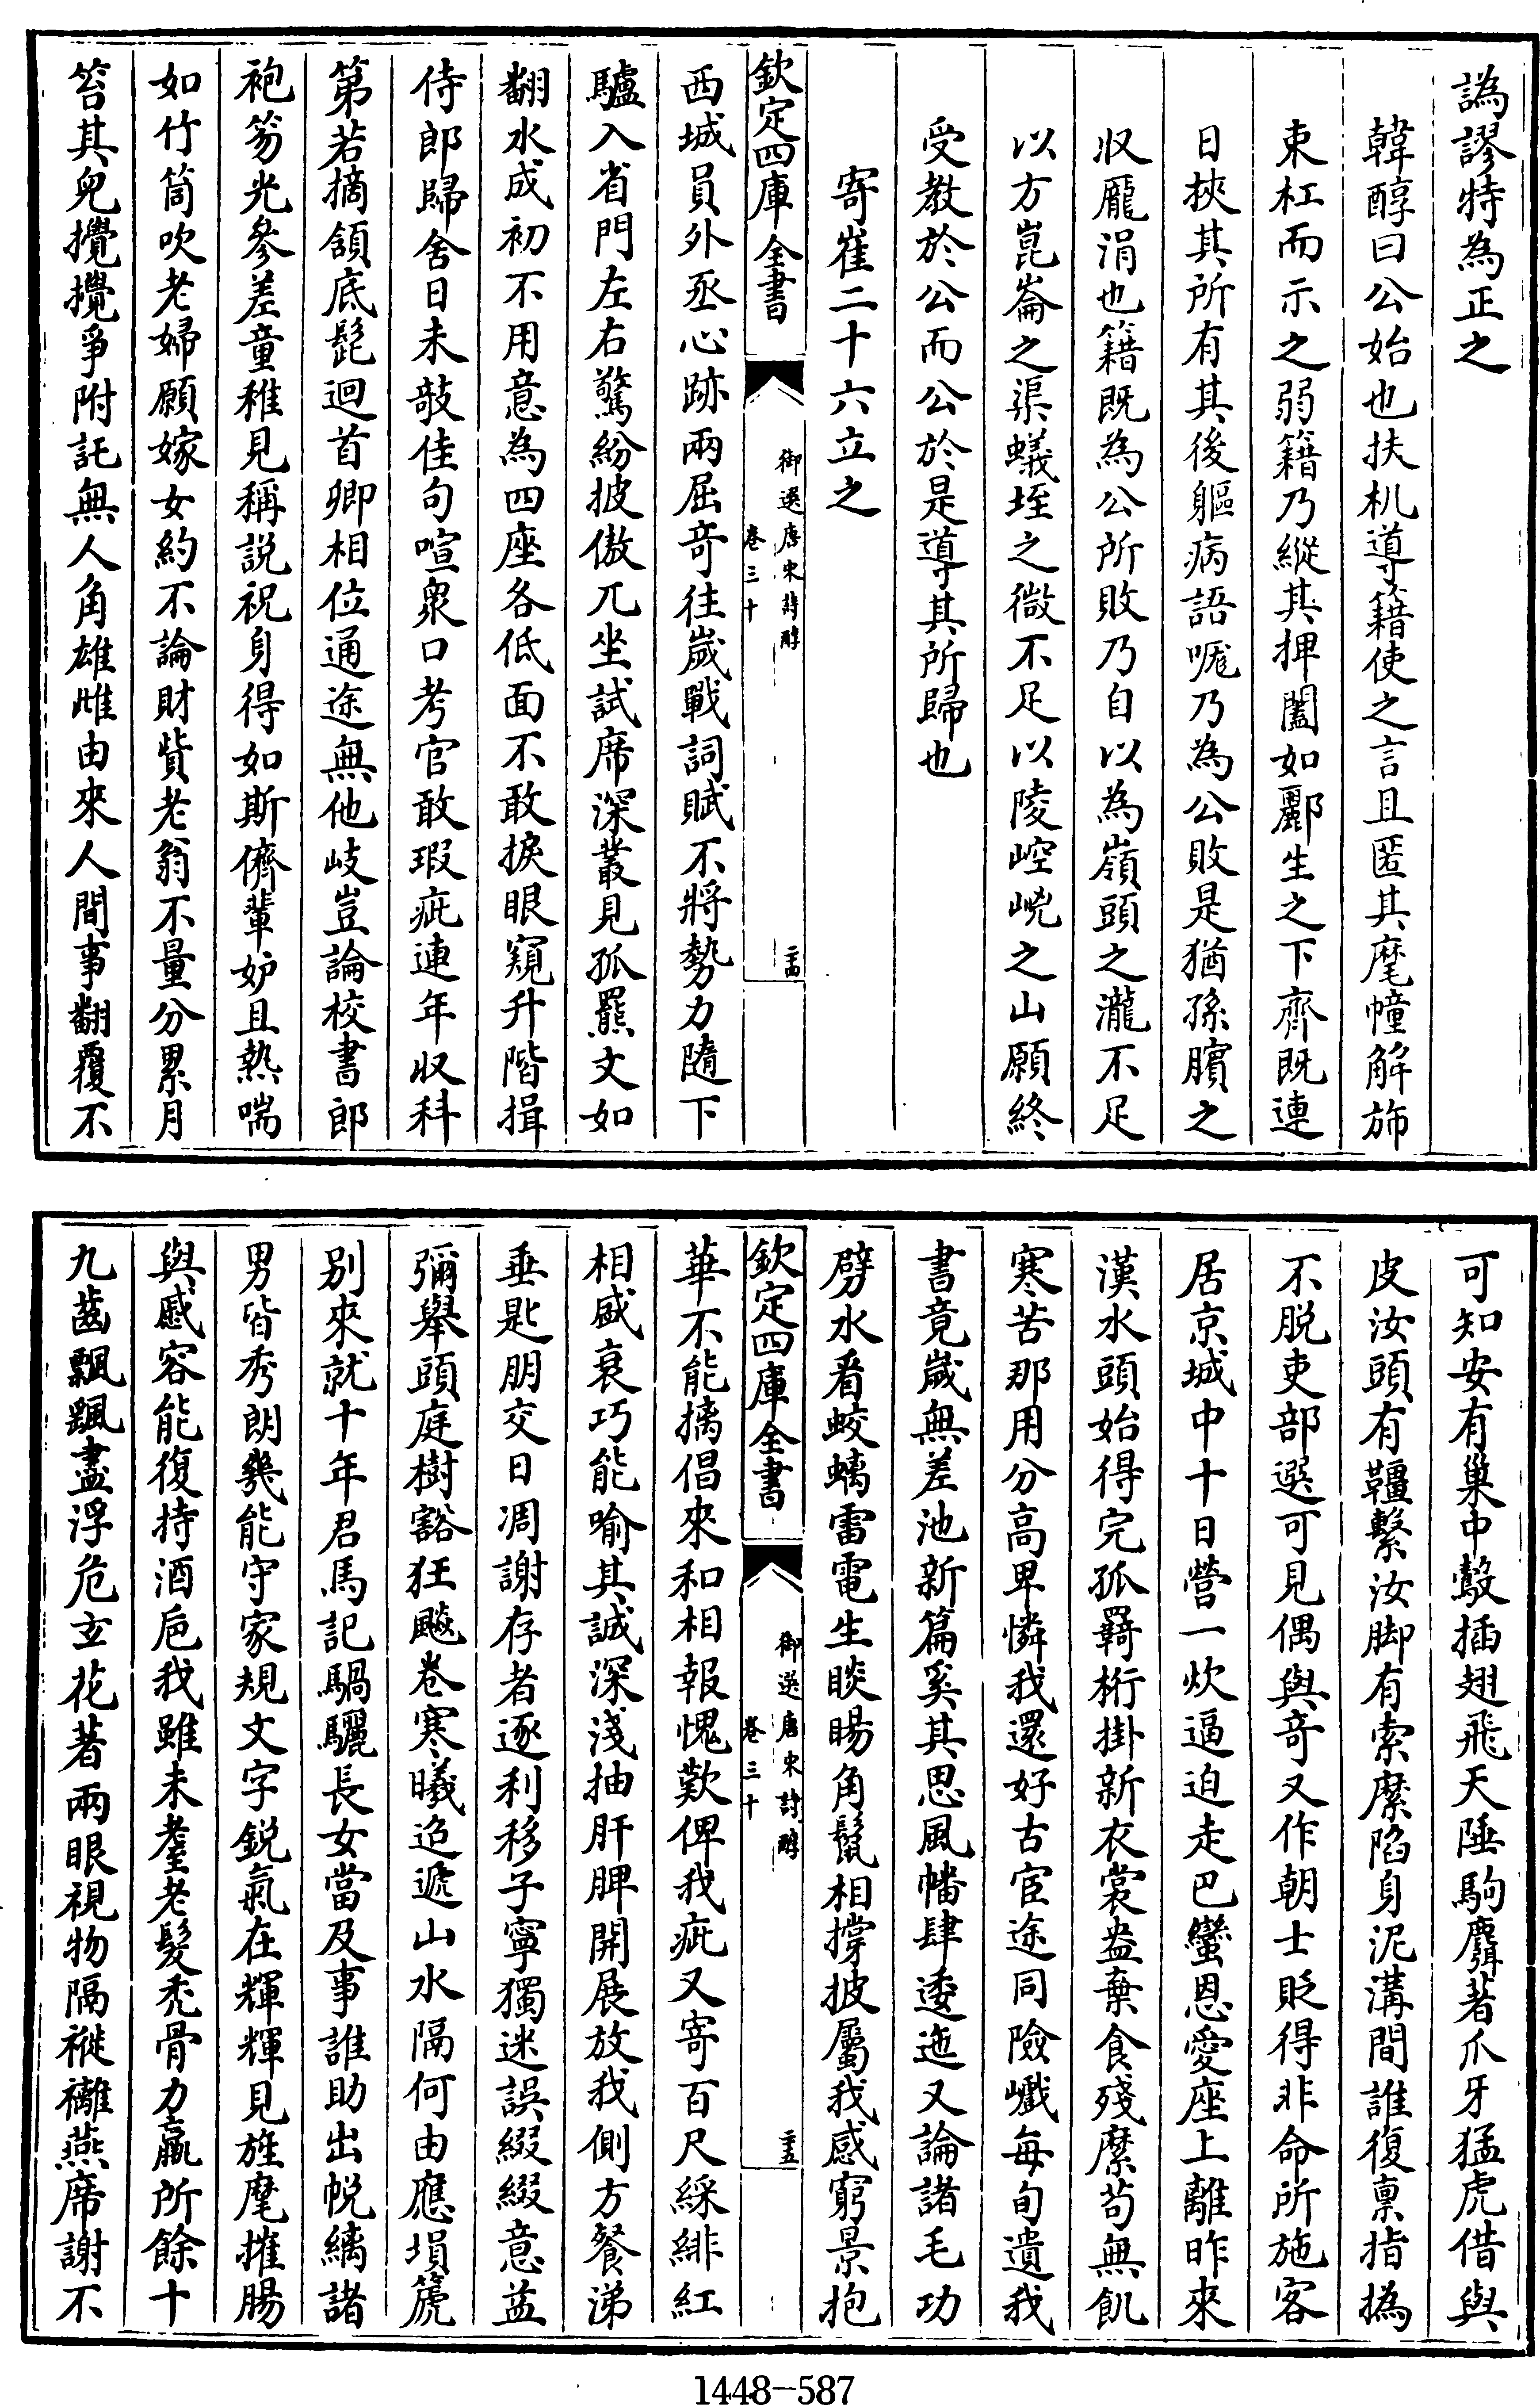 譌謬特為正之
韓醇曰公始也扶机導籍使之言且匿其麾幢解斾
束杠而示之弱籍乃縱其捭闔如酈生之下齊既連
日挾其所有其後軀病語唲乃為公敗是猶孫臏之
収龎涓也籍既為公所敗乃自以為嶺頭之瀧不足
以方崑崙之渠蟻垤之微不足以陵崆峣之山願終
受教於公而公於是導其所歸也
寄崔二十六立之
欽定四庫全書
御選唐宋詩醇
卷三十
二十四
西城員外丞心跡兩屈奇往嵗戰詞賦不將勢力隨下
驢入省門左右驚紛披傲兀坐試席深叢見孤羆文如
翻水成初不用意為四座各低面不敢捩眼窺升階揖
侍郎歸舍日未敧佳句喧衆口考官敢瑕疵連年収科
第若摘頷底髭迴首卿相位通途無他岐豈論校書郎
袍笏光參差童稚見稱説祝身得如斯儕輩妒且熱喘
如竹筒吹老婦願嫁女約不論財貲老翁不量分累月
笞其兒攪攪爭附託無人角雄雌由來人間事翻覆不
可知安有巢中鷇插翅飛天陲駒麛著爪牙猛虎借與
皮汝頭有韁繫汝脚有索縻陷身泥溝間誰復禀指撝
不脱吏部選可見偶與奇又作朝士貶得非命所施客
居京城中十日營一炊逼迫走巴蠻恩愛座上離昨來
漢水頭始得完孤羇桁掛新衣裳盎棄食殘縻茍無飢
寒苦那用分高卑憐我還好古宦途同險巇每旬遺我
書竟嵗無差池新篇奚其思風幡肆逶迤又論諸毛功
劈水看蛟螭雷電生睒睗角鬛相撐披屬我感窮景抱
欽定四庫全書
御選唐宋詩醇
卷三十
二十五
華不能摛倡來和相報愧歎俾我疵又寄百尺綵緋紅
相盛衰巧能喻其誠深淺抽肝脾開展放我側方餐涕
垂匙朋交日凋謝存者逐利移子寧獨迷誤綴綴意益
彌舉頭庭樹豁狂飈卷寒曦迢遞山水隔何由應塤篪
别來就十年君馬記騧驪長女當及事誰助出帨縭諸
男皆秀朗幾能守家規文字鋭氣在輝輝見旌麾摧腸
與慼容能復持酒巵我雖未耋老髮秃骨力羸所餘十
九齒飄飄盡浮危玄花著兩眼視物隔褷䙰燕席謝不
1448-587